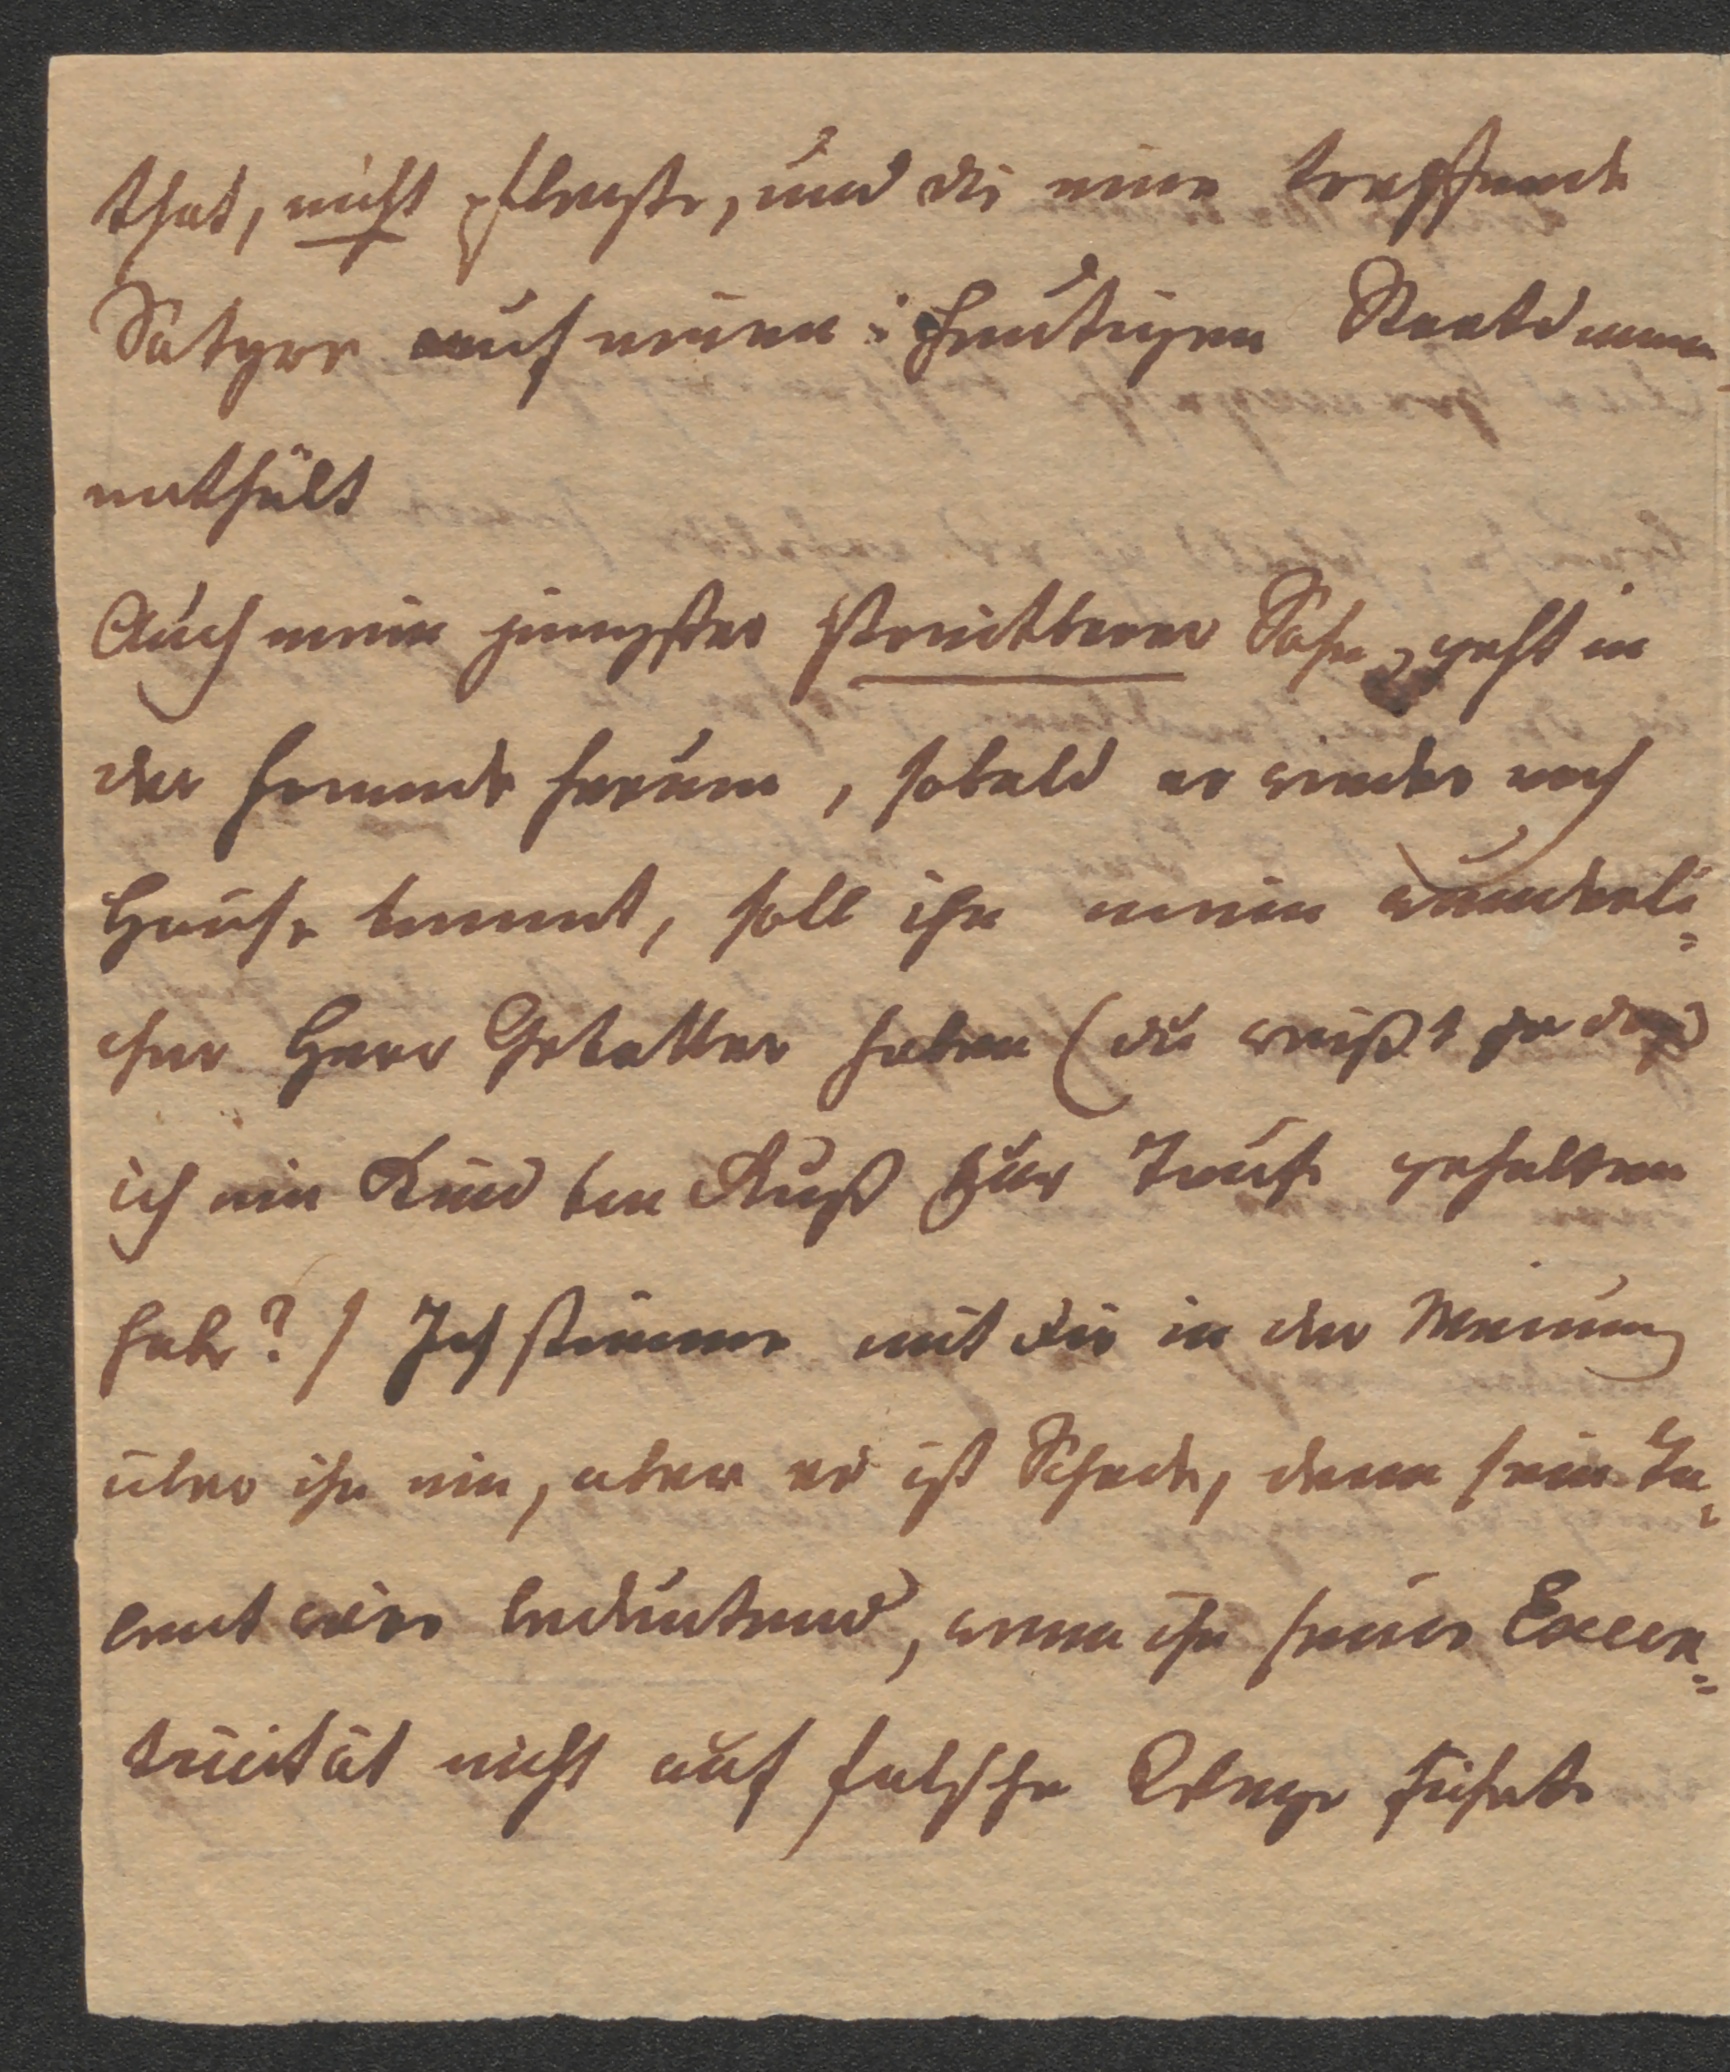 that, nicht pflanzte, und die eine treffende
Satyre auf einen heutigen Staatsmann
enthält
Auch mein jüngster Sohn, geht in
der Fremde herum, sobald er wieder nach
Hause kommt, soll ihn mein wunderli=
cher Herr Gevatter haben (du weißt ja daß
ich ein Kind bei Ruß zur Taufe gehalten
habe?) Ich stimme mit dir in der Meinung
über ihn ein, aber es ist Schade, denn sein Ta=
lent wäre bedeutend, wenn ihn seine Excen=
tricität nicht auf falsche Wege führte